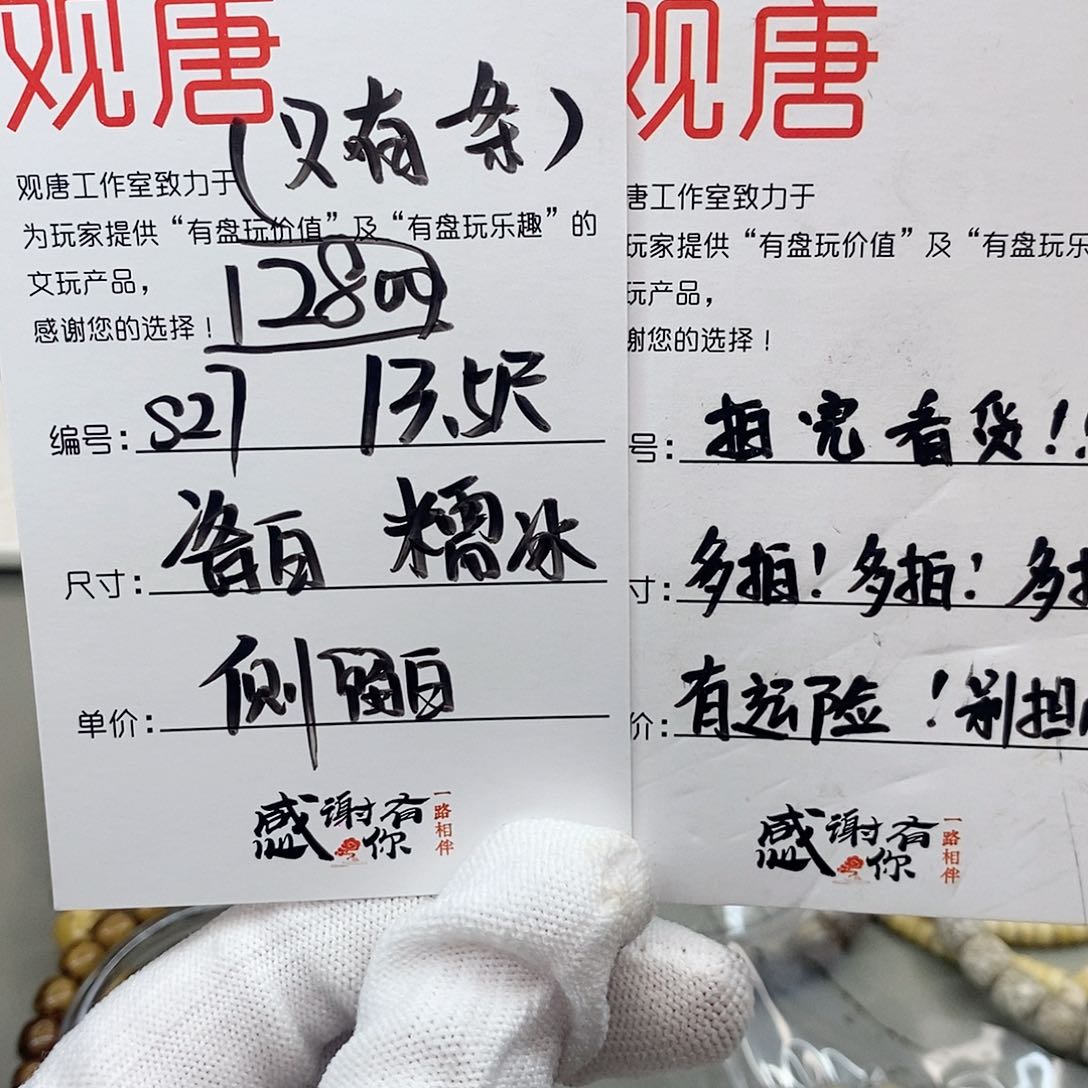 观唐
(又有条)
观唐工作室致力于
为玩家提供“有盘玩价值”及“有盘玩乐趣”的
文玩产品，
12800
感谢您的选择！
编号：S27 13.5尺
尺寸：白 糯冰
单价：侧留白
感谢有你
一路相伴
观唐
唐工作室致力于
玩家提供“有盘玩价值”及“有盘玩乐
玩产品，
谢您的选择！
号：拍完看货！！
寸：多拍！多拍！多拍
价：有运险！别担
感谢有你
一路相伴